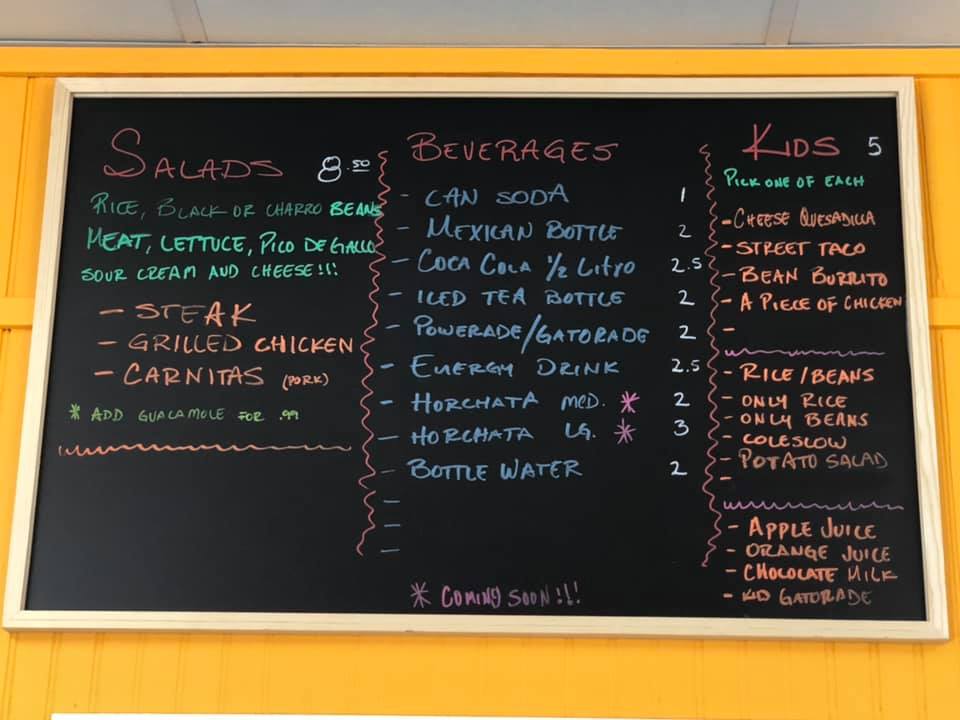 SALADS 8.50
RICE, BLACK OR CHARRO BEANS
MEAT, LETTUCE, PICO DE GALLO
SOUR CREAM AND CHEESE!!!
- STEAK
- GRILLED CHICKEN
- CARNITAS (PORK)
* ADD GUACAMOLE FOR .99
BEVERAGES
- CAN SODA 1
- MEXICAN BOTTLE 2
- COCA COLA 1/2 LITRO 2.5
- ICED TEA BOTTLE 2
- POWERADE/GATORADE 2
- ENERGY DRINK 2.5
- HORCHATA MED. * 2
- HORCHATA LG. * 3
- BOTTLE WATER 2
-
-
-
* COMING SOON!!!
KIDS 5
PICK ONE OF EACH
- CHEESE QUESADILLA
- STREET TACO
- BEAN BURRITO
- A PIECE OF CHICKEN
-
- RICE/BEANS
- ONLY RICE
- ONLY BEANS
- COLESLOW
- POTATO SALAD
-
- APPLE JUICE
- ORANGE JUICE
- CHOCOLATE MILK
- KID GATORADE